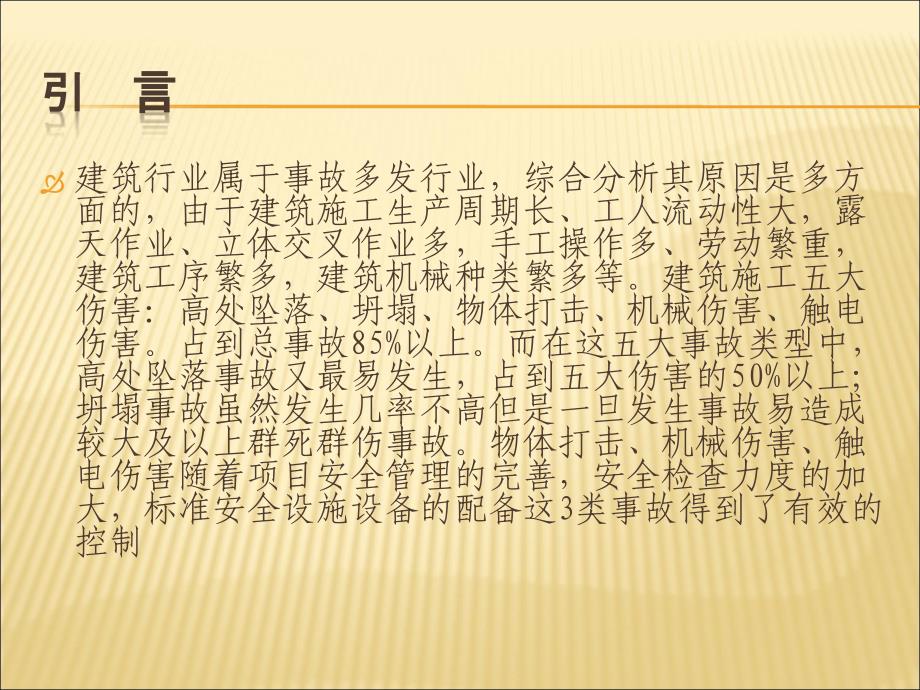 引　言
建筑行业属于事故多发行业，综合分析其原因是多方
面的，由于建筑施工生产周期长、工人流动性大，露
天作业、立体交叉作业多，手工操作多、劳动繁重，
建筑工序繁多，建筑机械种类繁多等。建筑施工五大
伤害：高处坠落、坍塌、物体打击、机械伤害、触电
伤害。占到总事故85%以上。而在这五大事故类型中，
高处坠落事故又最易发生，占到五大伤害的50%以上；
坍塌事故虽然发生几率不高但是一旦发生事故易造成
较大及以上群死群伤事故。物体打击、机械伤害、触
电伤害随着项目安全管理的完善，安全检查力度的加
大，标准安全设施设备的配备这3类事故得到了有效的
控制